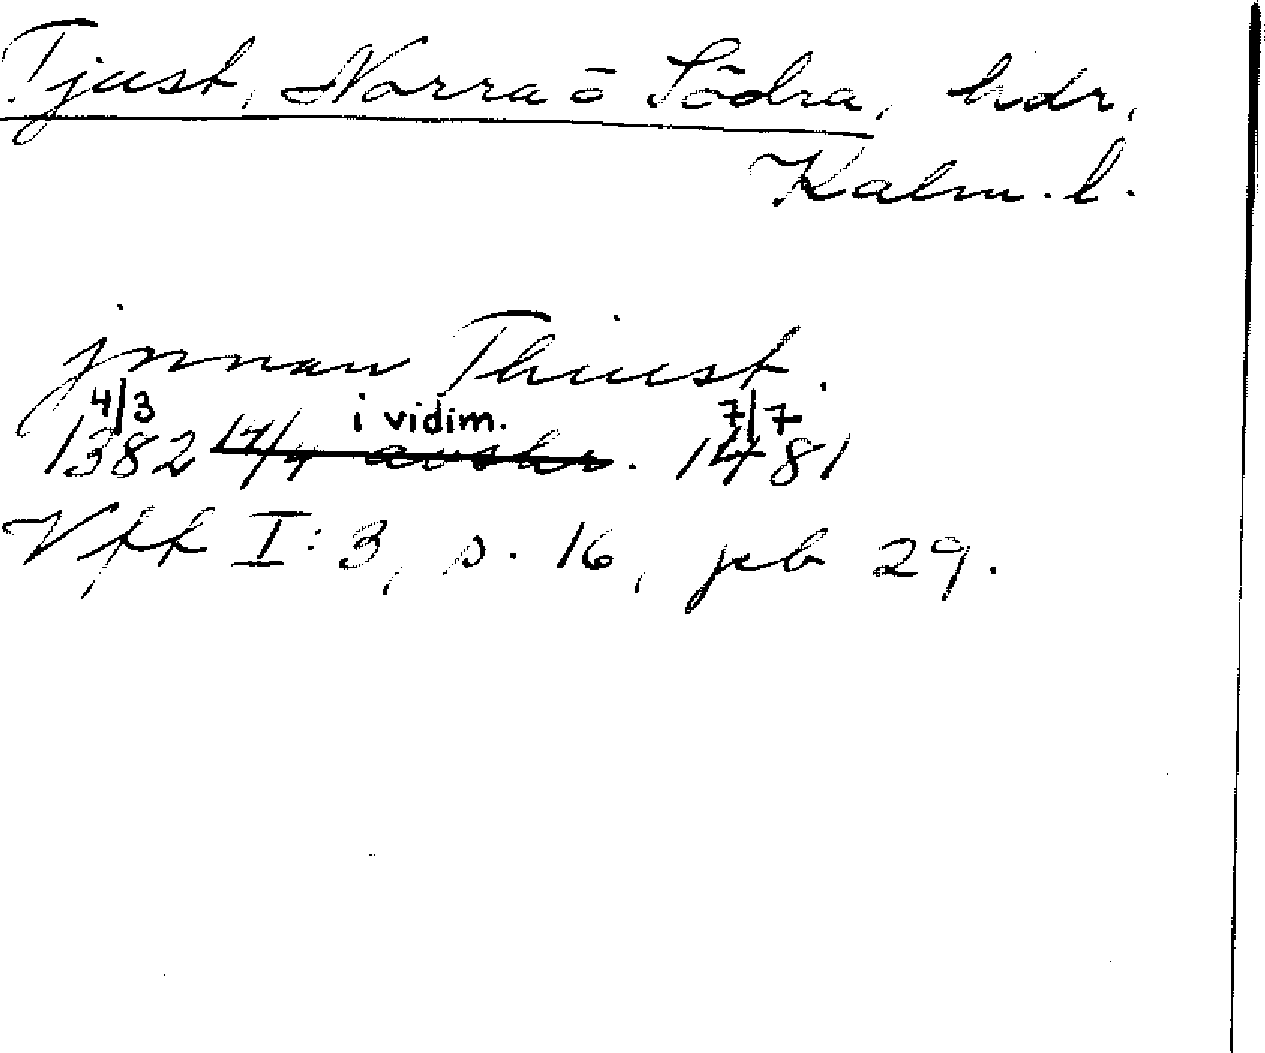 Tjust, Norra o Södra, hdr,
Kalm. l.
jnnan Thiust.
4/3 i vidim. 7/7
1382 17/4 avskr. 1481
Vff I:3, s. 16, jeb 29.